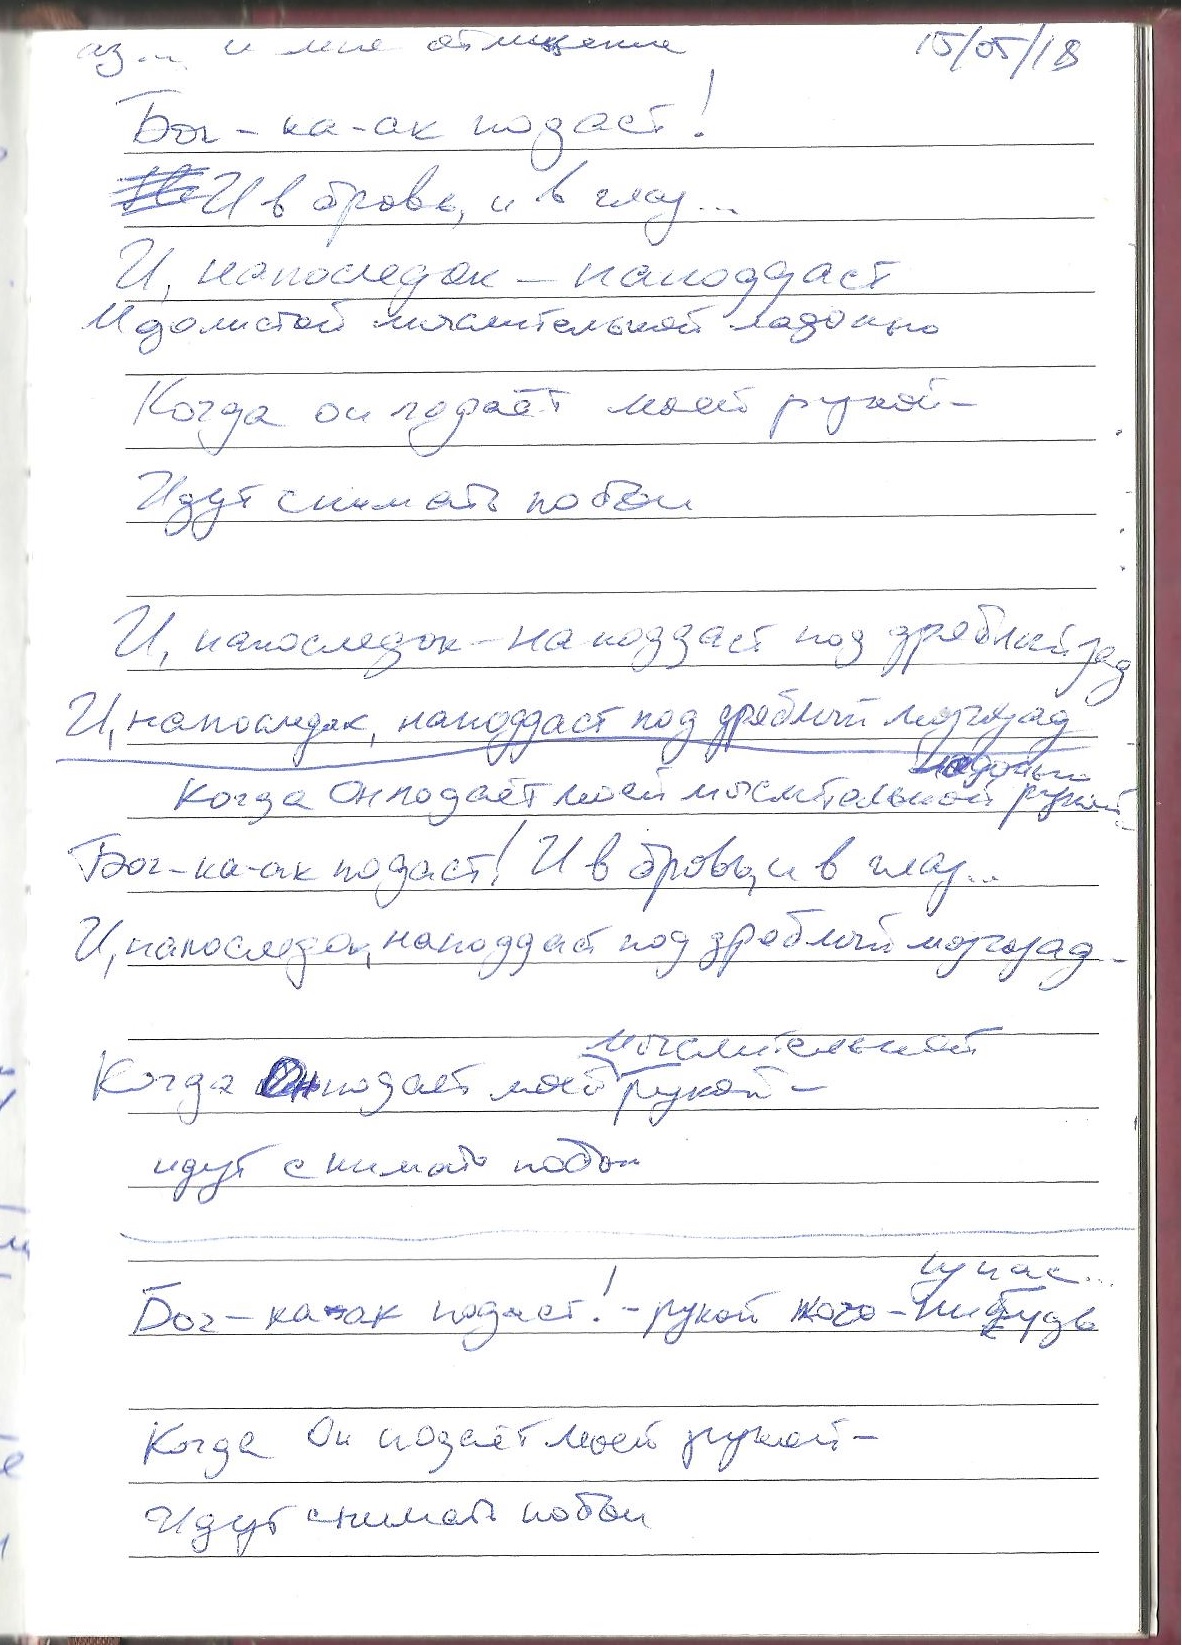 аз... и мне отмщение 15/05/18
Бог-ка-ак подаст!
И в бровь, и в глаз...
И, напоследок - наподдаст
мыслительной ладонью
Когда он подаёт моей рукой-
Идут снимать побои
И, напоследок - наподдаст под дряблый зад
И, напоследок, наподдаст под дряблый мозгозад
ладонью
Когда Он подаёт моей мыслительной рукой-
Бог-ка-ак подаст! И в бровь, и в глаз...
И, напоследок, наподдаст под дряблый мозгозад -
мыслительной
Когда Он подаёт моей рукой -
идут снимать побои
из нас...
Бог-ка-ак подаст! - рукой кого-нибудь
Когда Он подаёт моей рукой -
Идут снимать побои